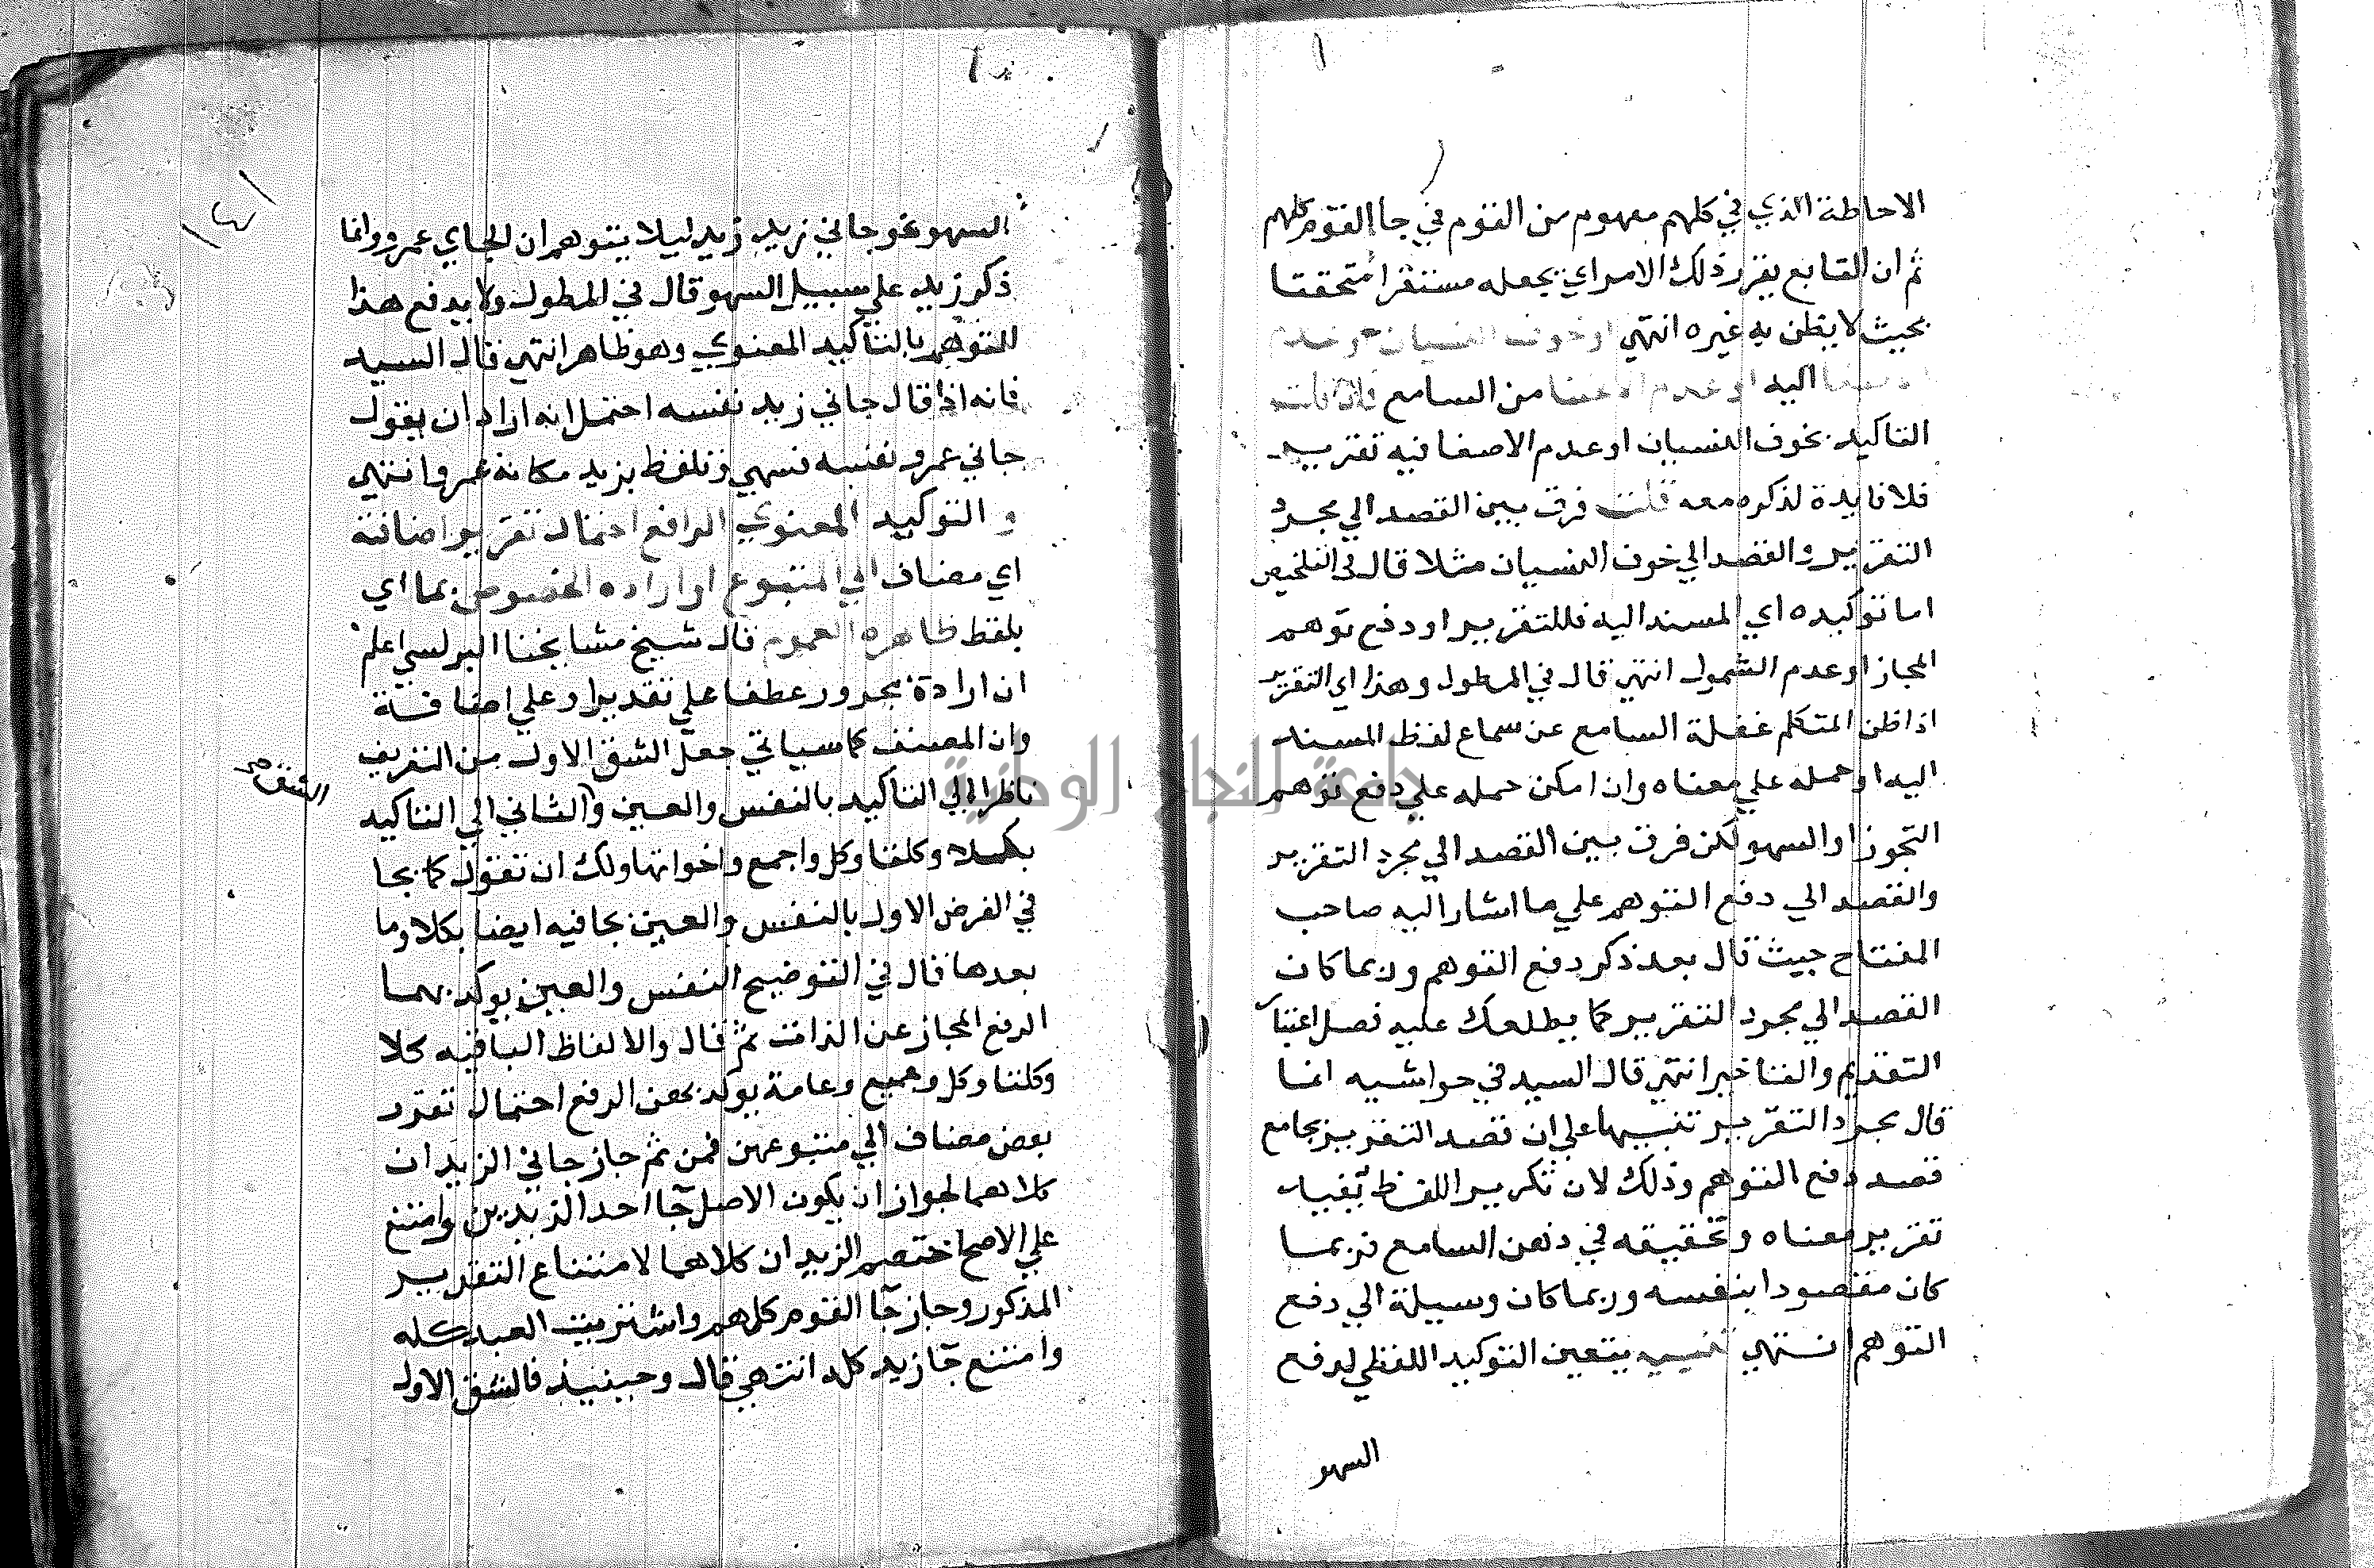 الاحاطة الذي في كلهم مفهوم من القوم في جا القوم كلهم
ثم ان التابع يقرر ذلك الامر اي يجعله مستقرا متحققا
بحيث لا يظن به غيره انتهي او خوف النسيان او عدم
الاصغا اليه او عدم الاعتنا من السامع فان قلت
التاكيد بخوف النسيان او عدم الاصغا فيه تقرير
فلا فايدة لذكره معه قلت فرق بين القصد الي مجرد
التقرير والقصد الي خوف النسيان مثلا قال في التلخيص
اما توكيده اي المسند اليه فللتقرير او دفع توهم
المجاز او عدم الشمول انتهي قال في المطول وهذا اي التقرير
اذا ظن المتكلم غفلة السامع عن سماع لفظ المسند
اليه او حمله علي معناه وان امكن حمله علي دفع توهم
التجوز او السهو لكن فرق بين القصد الي مجرد التقرير
والقصد الي دفع التوهم علي ما اشار اليه صاحب
المفتاح حيث قال بعد ذكر دفع التوهم وربما كان
القصد الي مجرد التقرير كما يطلعك عليه فصل اعتبار
التقديم والتاخير انتهي قال السيد في حواشيه انما
قال مجرد التقرير تنبيها علي ان قصد التقرير يجامع
قصد دفع التوهم وذلك لان تكرير اللفظ يفيد
تقرير معناه وتحقيقه في ذهن السامع فربما
كان مقصودا بنفسه وربما كان وسيلة الي دفع
التوهم انتهي تنبيه يتعين التوكيد اللفظي لدفع
السهو
السهو نحو جاني زيد زيد ليلا يتوهم ان الجاي عمرو وانما
ذكر زيد علي سبيل السهو قال في المطول ولا يدفع هذا
التوهم بالتاكيد المعنوي وهو ظاهر انتهي قال السيد
فانه اذا قال جاني زيد نفسه احتمل انه اراد ان يقول
جاني عمرو نفسه فسهي وتلفظ بزيد مكانه عمرو انتهي
و التوكيد المعنوي الرافع احتمال تقرير اضافة
اي مضاف الي المتبوع او اراده الخصوص بما اي
بلفظ ظاهره العموم قال شيخ مشايخنا البرلسي اعلم
ان ارادة مجرور عطفا علي تقدير او علي اضافة
وان المصنف كما سياتي جعل الشق الاول من التعريف
ناظرا الي التاكيد بالنفس والعين والثاني الي التاكيد
الشق صح
بكلا وكلتا وكل واجمع واخواتها ولك ان تقول كما يجا
في الفرض الاول بالنفس والعين يجا فيه ايضا بكلا وما
بعدها قال في التوضيح النفس والعين يوكد بهما
الرفع المجاز عن الذات ثم قال والالفاظ الباقيه كلا
وكلتا وكل وجميع وعامة يوكد بهن الرفع احتمال تقدر
بعض مضاف الي متبوعهن فمن ثم جاز جاني الزيدان
كلاهما لجواز ان يكون الاصل جا احد الزيدين وامتنع
علي الاصح اختصم الزيدان كلاهما لامتناع التقدير
المذكور وجاز جا القوم كلهم واشتريت العبد كله
وامتنع جا زيد كله انتهي قال وحينيذ فالشق الاول
جامعة النجاح الوطنية